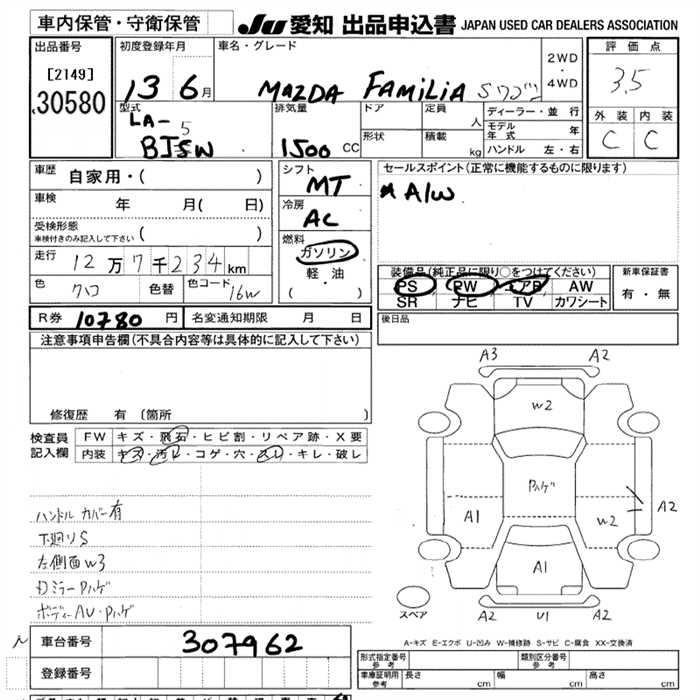 車内保管・守衛保管
JU 愛知 出品申込書 JAPAN USED CAR DEALERS ASSOCIATION
出品番号
[2149]
30580
初度登録年月
13 6月
車名・グレード
MAZDA FAMILIA Sワゴン
2WD
・
4WD
評価点
3.5
外装 内装
C C
型式
LA-
BJ5W
5
排気量
1500 CC
ドア
形状
定員
人
積載
kg
ディーラー・並行
モデル年式 年
ハンドル 左・右
車歴 自家用・( )
車検 年 月( 日)
受検形態
車検付きのみ記入して下さい ( )
走行 12万7千234km
色 色替 色コード 16W
シフト
MT
冷房
AC
燃料
ガソリン
・
軽・油
( )
セールスポイント(正常に機能するものに限ります)
* A/W
装備品(純正品に限り○をつけてください)
PS PW エアB AW
SR ナビ TV カワシート
新車保証書
有・無
後日品
R券 10780 円 名変通知期限 月 日
注意事項申告欄(不具合内容等は具体的に記入して下さい)
修復歴 有 (箇所 )
検査員
記入欄
FW キズ・飛石・ヒビ割・リペア跡・X要
内装 キズ・汚レ・コゲ・穴・スレ・キレ・破レ
ハンドルカバー有
下廻りS
左側面W3
Dミラー Pハゲ
ボディーAU・Pハゲ
A3 A2
W2
Pハゲ
A1 W2 A2
A1
スペア
A2 U1 A2
A-キズ E-エクボ U-凹み W-補修跡 S-サビ C-腐食 XX-交換済
車台番号 307962
登録番号
形式指定番号
参考
類別区分番号
参考
車庫証明用
参考
長さ cm 幅 cm 高さ cm